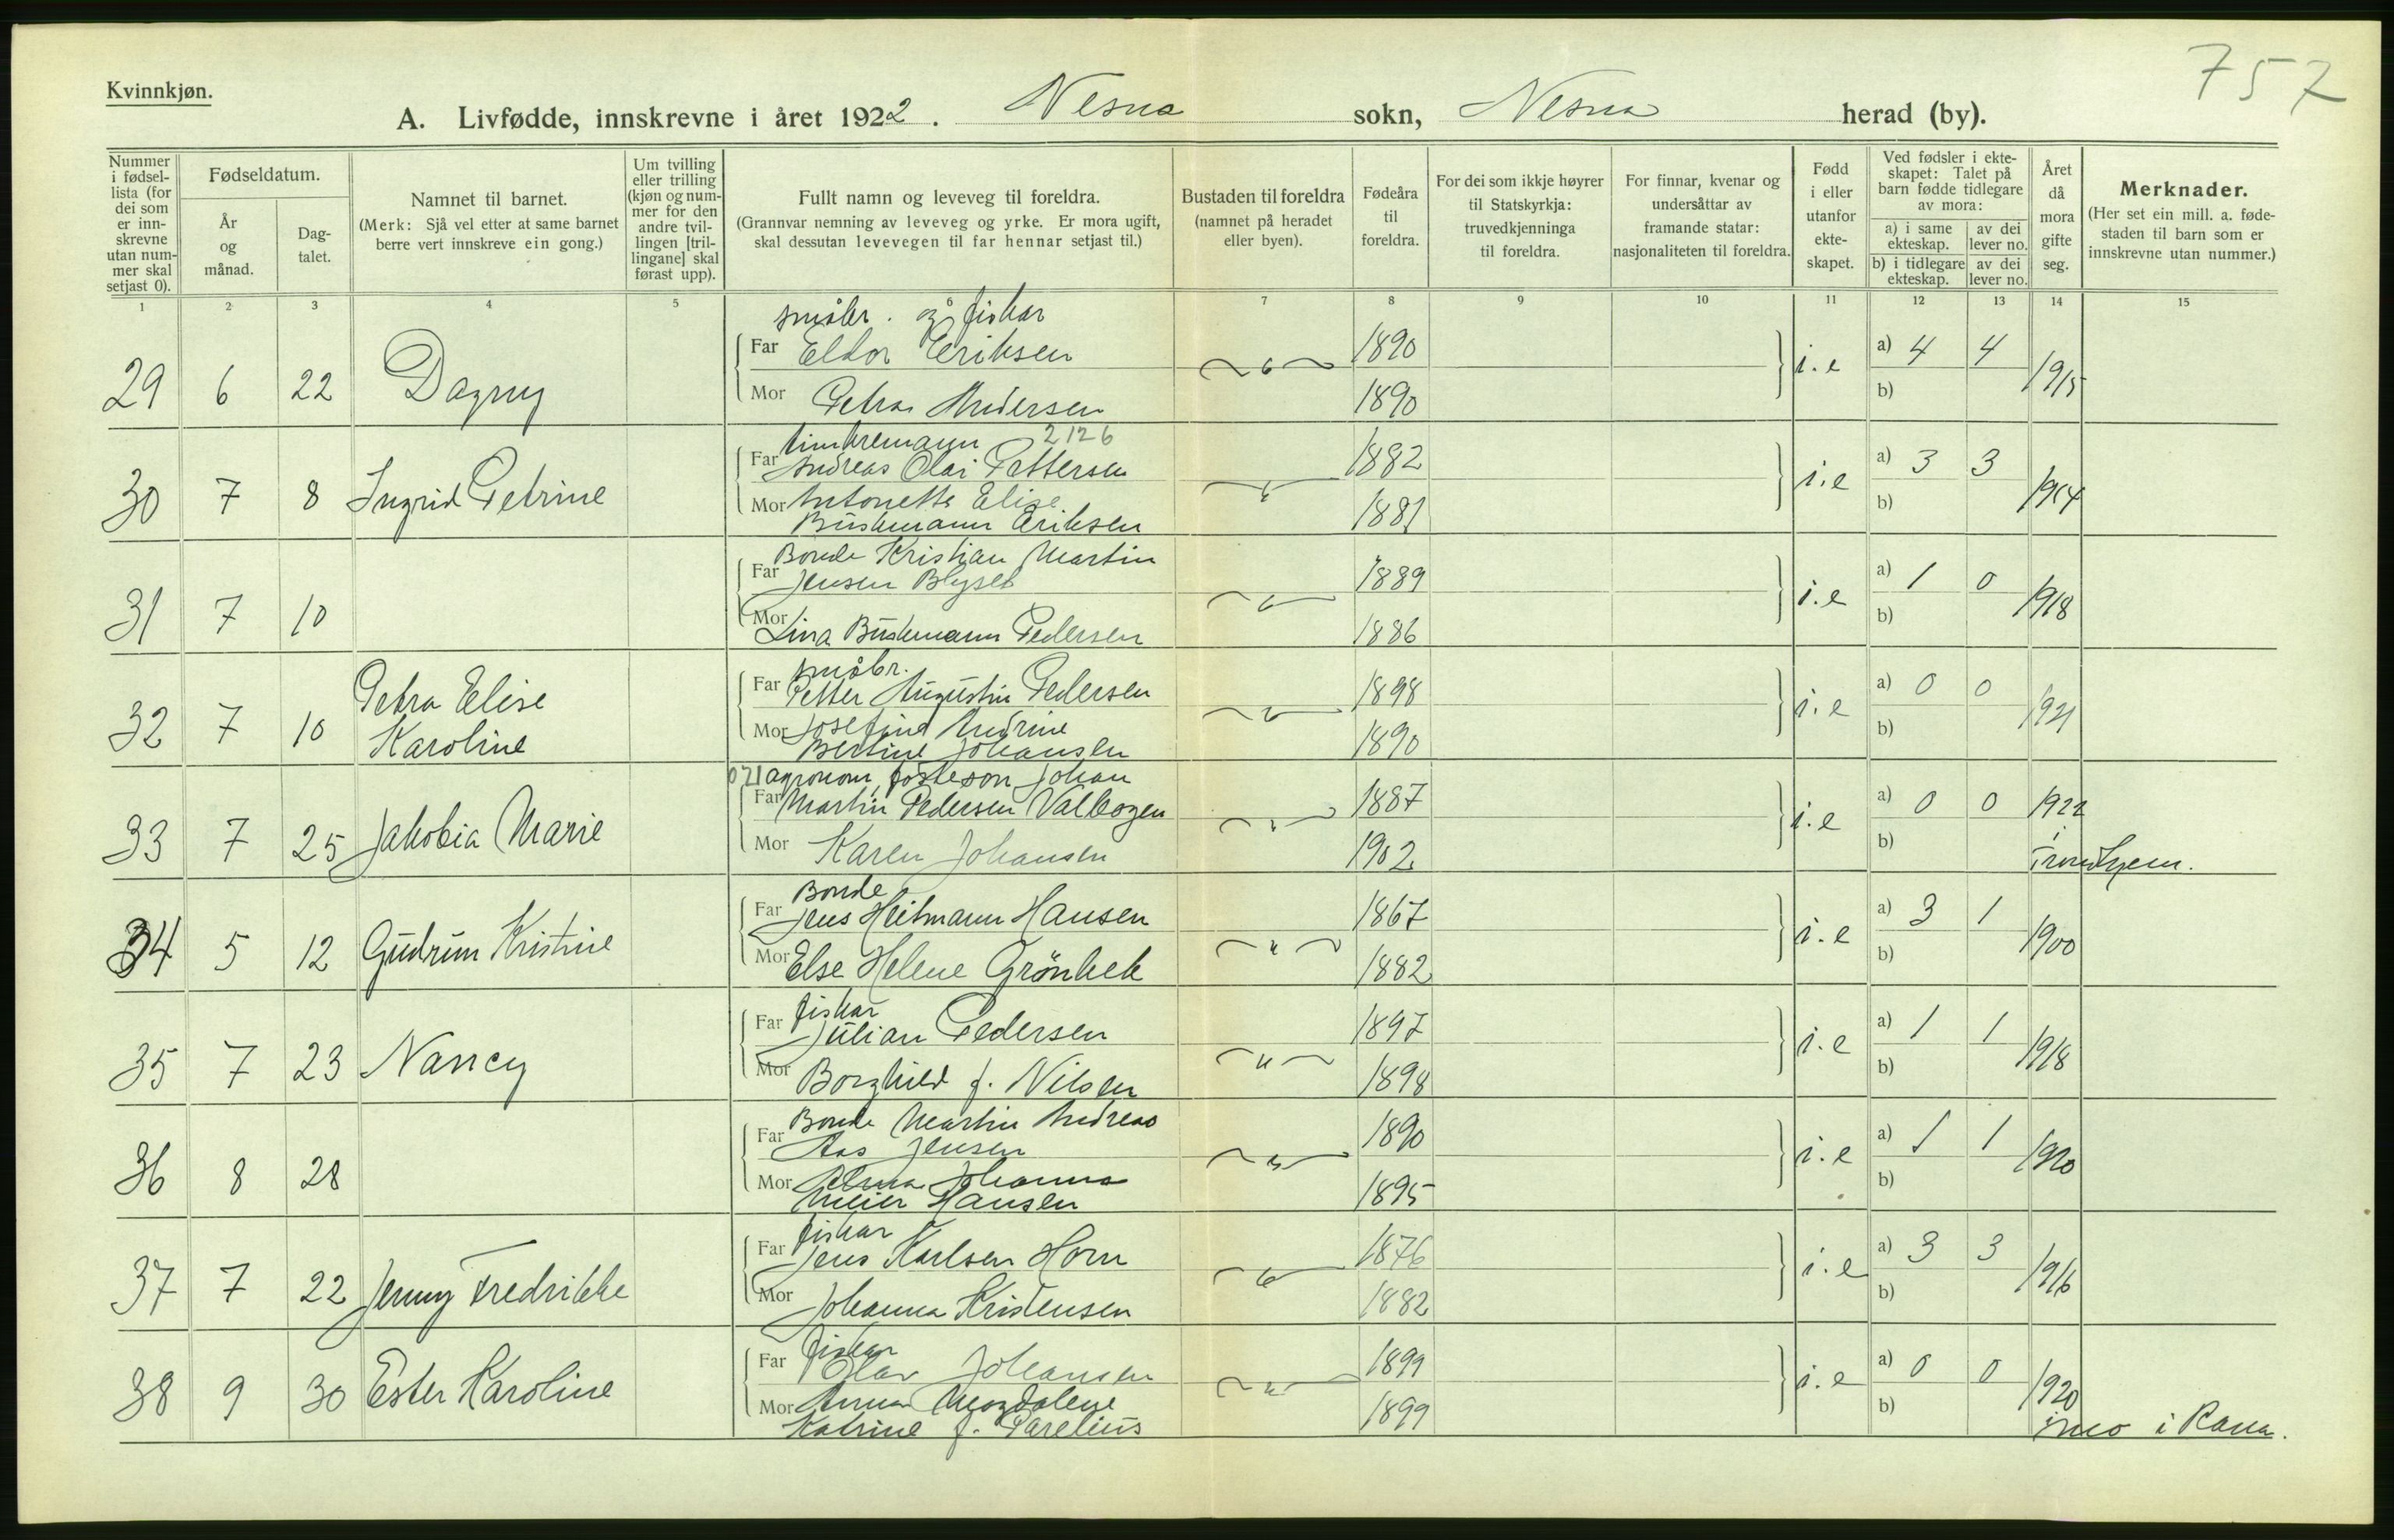 757
Kvinnkjøn.
A. Livfødde, innskrevne i året 1922. Nesna sokn, Nesna herad (by).
Nummer i fødsel-lista (for dei som er inn-skrevne utan num-mer skal setjast 0).
Fødseldatum.
År og månad.
Dag-talet.
Namnet til barnet.
(Merk: Sjå vel etter at same barnet berre vert innskreve ein gong.)
Um tvilling eller trilling (kjøn og num-mer for den andre tvil-lingen [tril-lingane] skal førast upp).
Fullt namn og leveveg til foreldra.
(Grannvar nemning av leveveg og yrke. Er mora ugift, skal dessutan levevegen til far hennar setjast til.)
Bustaden til foreldra
(namnet på heradet eller byen).
Fødeåra til foreldra.
For dei som ikkje høyrer til Statskyrkja: truvedkjenninga til foreldra.
For finnar, kvenar og undersåttar av framande statar: nasjonaliteten til foreldra.
Fødd i eller utanfor ekte-skapet.
Ved fødsler i ekte-skapet: Talet på barn fødde tidlegare av mora:
a) i same ekteskap.
av dei lever no.
b) i tidlegare ekteskap.
av dei lever no.
Året då mora gifte seg.
Merknader.
(Her set ein mill. a. føde-staden til barn som er innskrevne utan nummer.)
1 2 3 4 5 6 7 8 9 10 11 12 13 14 15
småbr. og fiskar
Far Eldor Eriksen 1890
29 6 22 Dagny i.e a) 4 4 1915
Mor Petra Andersen 1890 b)
timbremann 2126
Far Andreas Olai Pettersen 1882
30 7 8 Ingrid Petrine i.e a) 3 3 1914
Mor Antonette Elise
Buskmann Eriksen 1881 b)
Bonde Kristian Martin
Far Jensen Blyset 1889
31 7 10 i.e a) 1 0 1918
Mor Lina Buskmann Pedersen 1886 b)
småbr.
Far Petter Augustin Pedersen 1898
32 7 10 Petra Elise Karoline i.e a) 0 0 1921
Mor Josefine Andrine
Bertine Johansen 1890 b)
021 agronom, fosteson Johan
Far Martin Pedersen Valbogen 1887
33 7 25 Jakobia Marie i.e a) 0 0 1922
Mor Karen Johansen 1902 b) i Trondhjem.
Bonde
Far Jens Heitmann Hansen 1867
34 5 12 Gudrun Kristine i.e a) 3 1 1900
Mor Else Helene Grönbek 1882 b)
fiskar
Far Julian Pedersen 1897
35 7 23 Nancy i.e a) 1 1 1918
Mor Borghild f. Nilsen 1898 b)
Bonde Martin Andreas
Far Aas Jensen 1890
36 8 28 i.e a) 1 1 1920
Mor Alma Johanna
Meier Hansen 1895 b)
fiskar
Far Jens Karlsen Horn 1876
37 7 22 Jenny Fredrikke i.e a) 3 3 1916
Mor Johanna Kristensen 1882 b)
fiskar
Far Olav Johansen 1899
38 9 30 Ester Karoline i.e a) 0 0 1920
Mor Anna Magdalene
Katrine f. Parelius 1899 b) i Mo i Rana.